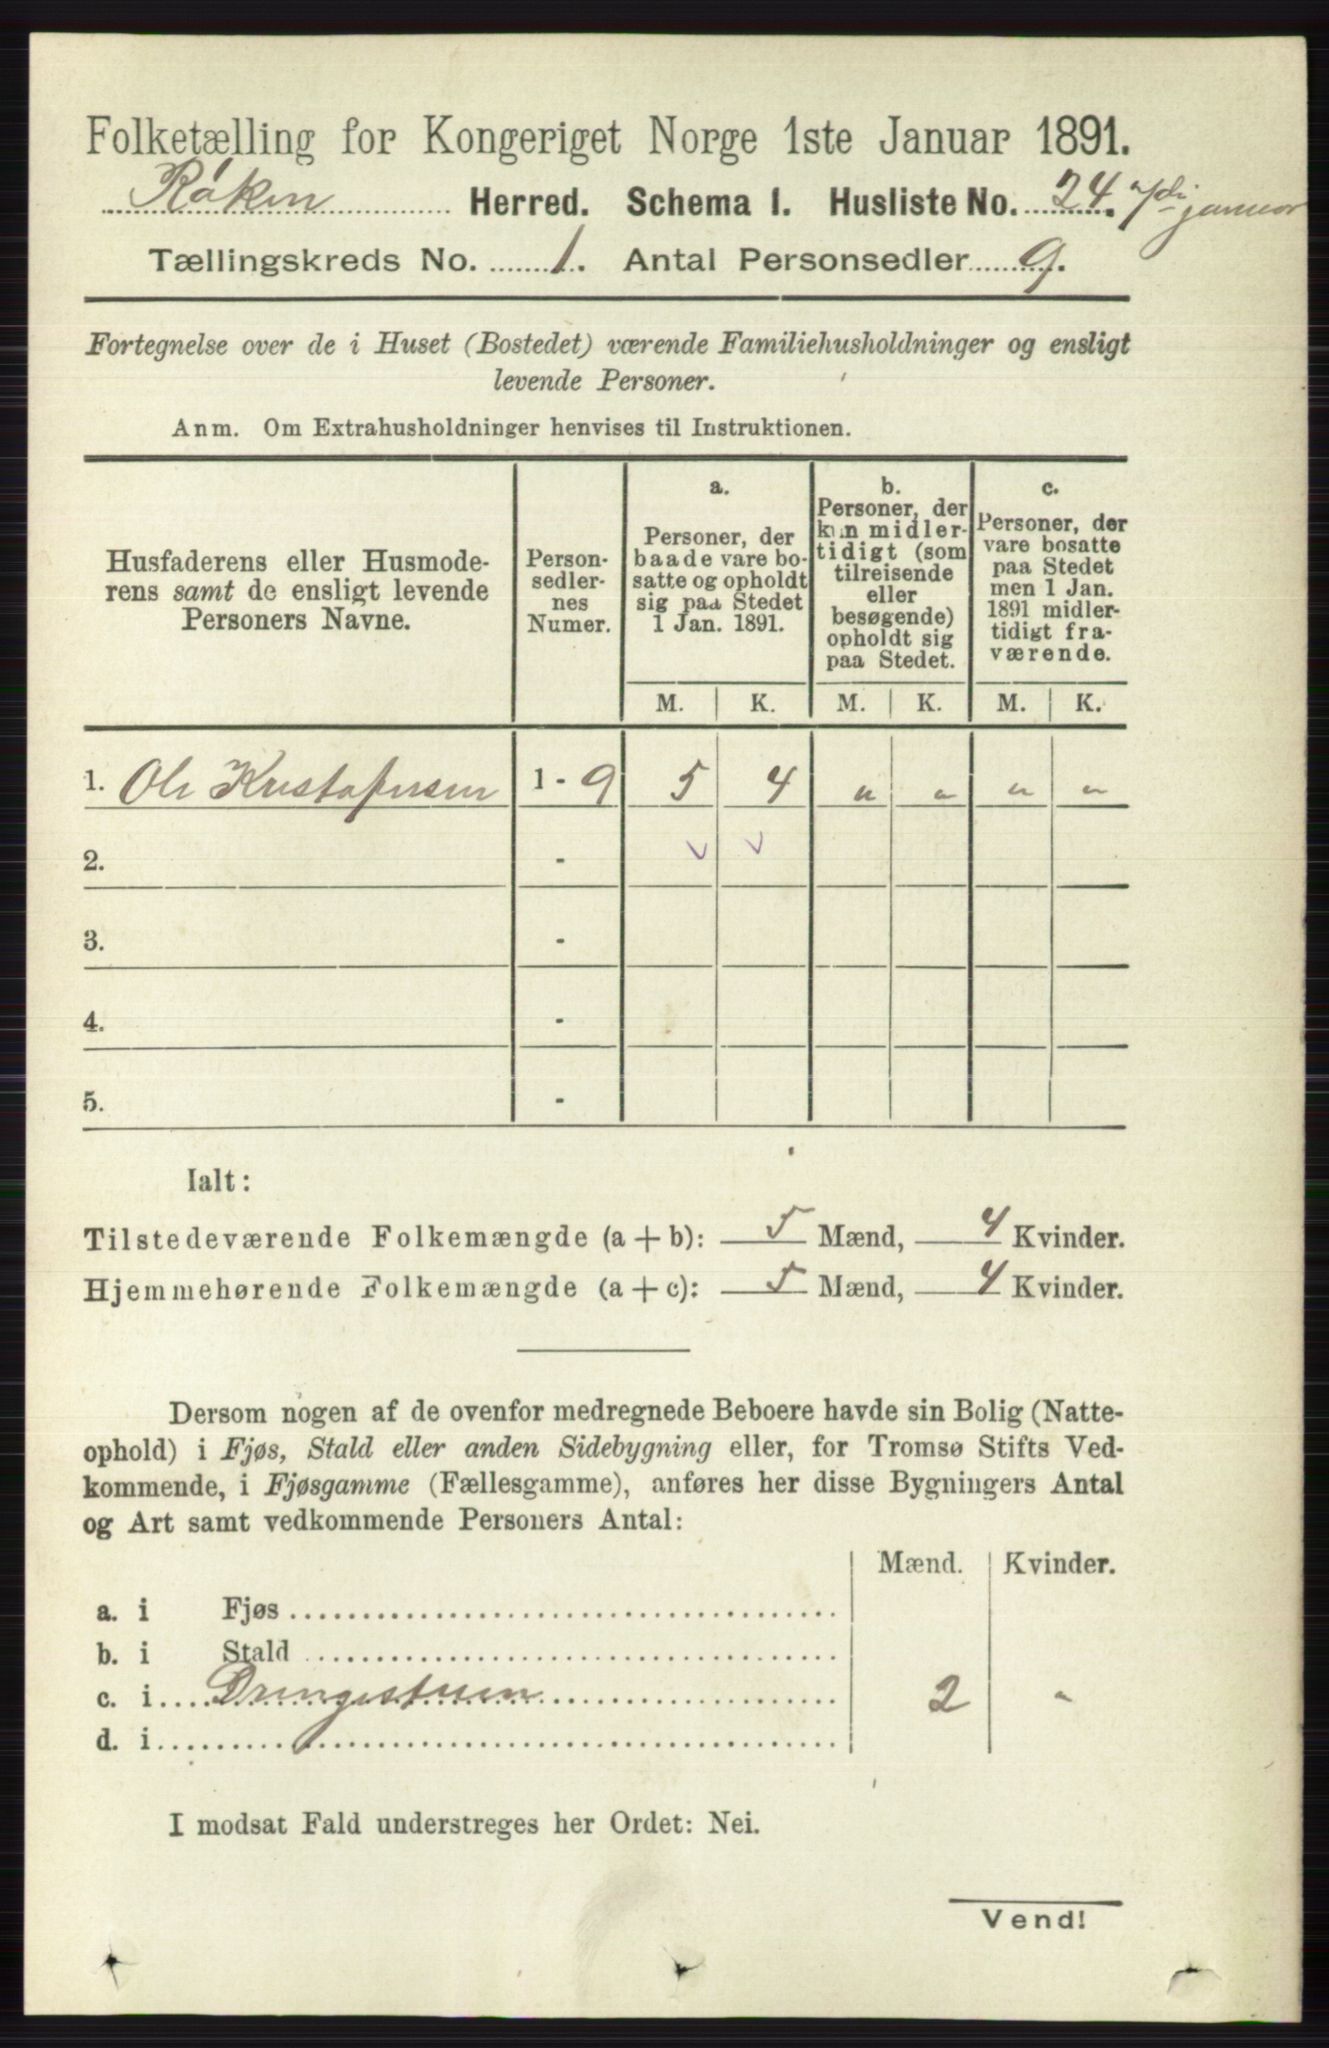 Folketælling for Kongeriget Norge 1ste Januar 1891.
Røken Herred. Schema 1. Husliste No. 24. 7de januar
Tællingskreds No. 1. Antal Personsedler 9.
Fortegnelse over de i Huset (Bostedet) værende Familiehusholdninger og ensligt
levende Personer.
Anm. Om Extrahusholdninger henvises til Instruktionen.
Husfaderens eller Husmode-
rens samt de ensligt levende
Personers Navne.
Person-
sedler-
nes
Numer.
a.
Personer, der
baade vare bo-
satte og opholdt
sig paa Stedet
1 Jan. 1891.
b.
Personer, der
kun midler-
tidigt (som
tilreisende
eller
besøgende)
opholdt sig
paa Stedet.
c.
Personer, der
vare bosatte
paa Stedet
men 1 Jan.
1891 midler-
tidigt fra-
værende.
M. K. M. K. M. K.
1. Ole Kristofersen 1 - 9 5 4 " " " "
2. -
3. -
4. -
5. -
Ialt:
Tilstedeværende Folkemængde (a + b): 5 Mænd, 4 Kvinder.
Hjemmehørende Folkemængde (a + c): 5 Mænd, 4 Kvinder.
Dersom nogen af de ovenfor medregnede Beboere havde sin Bolig (Natte-
ophold) i Fjøs, Stald eller anden Sidebygning eller, for Tromsø Stifts Ved-
kommende, i Fjøsgamme (Fællesgamme), anføres her disse Bygningers Antal
og Art samt vedkommende Personers Antal:
Mænd. Kvinder.
a. i Fjøs
b. i Stald
c. i Drengestuen 2 "
d. i
I modsat Fald understreges her Ordet: Nei.
Vend!